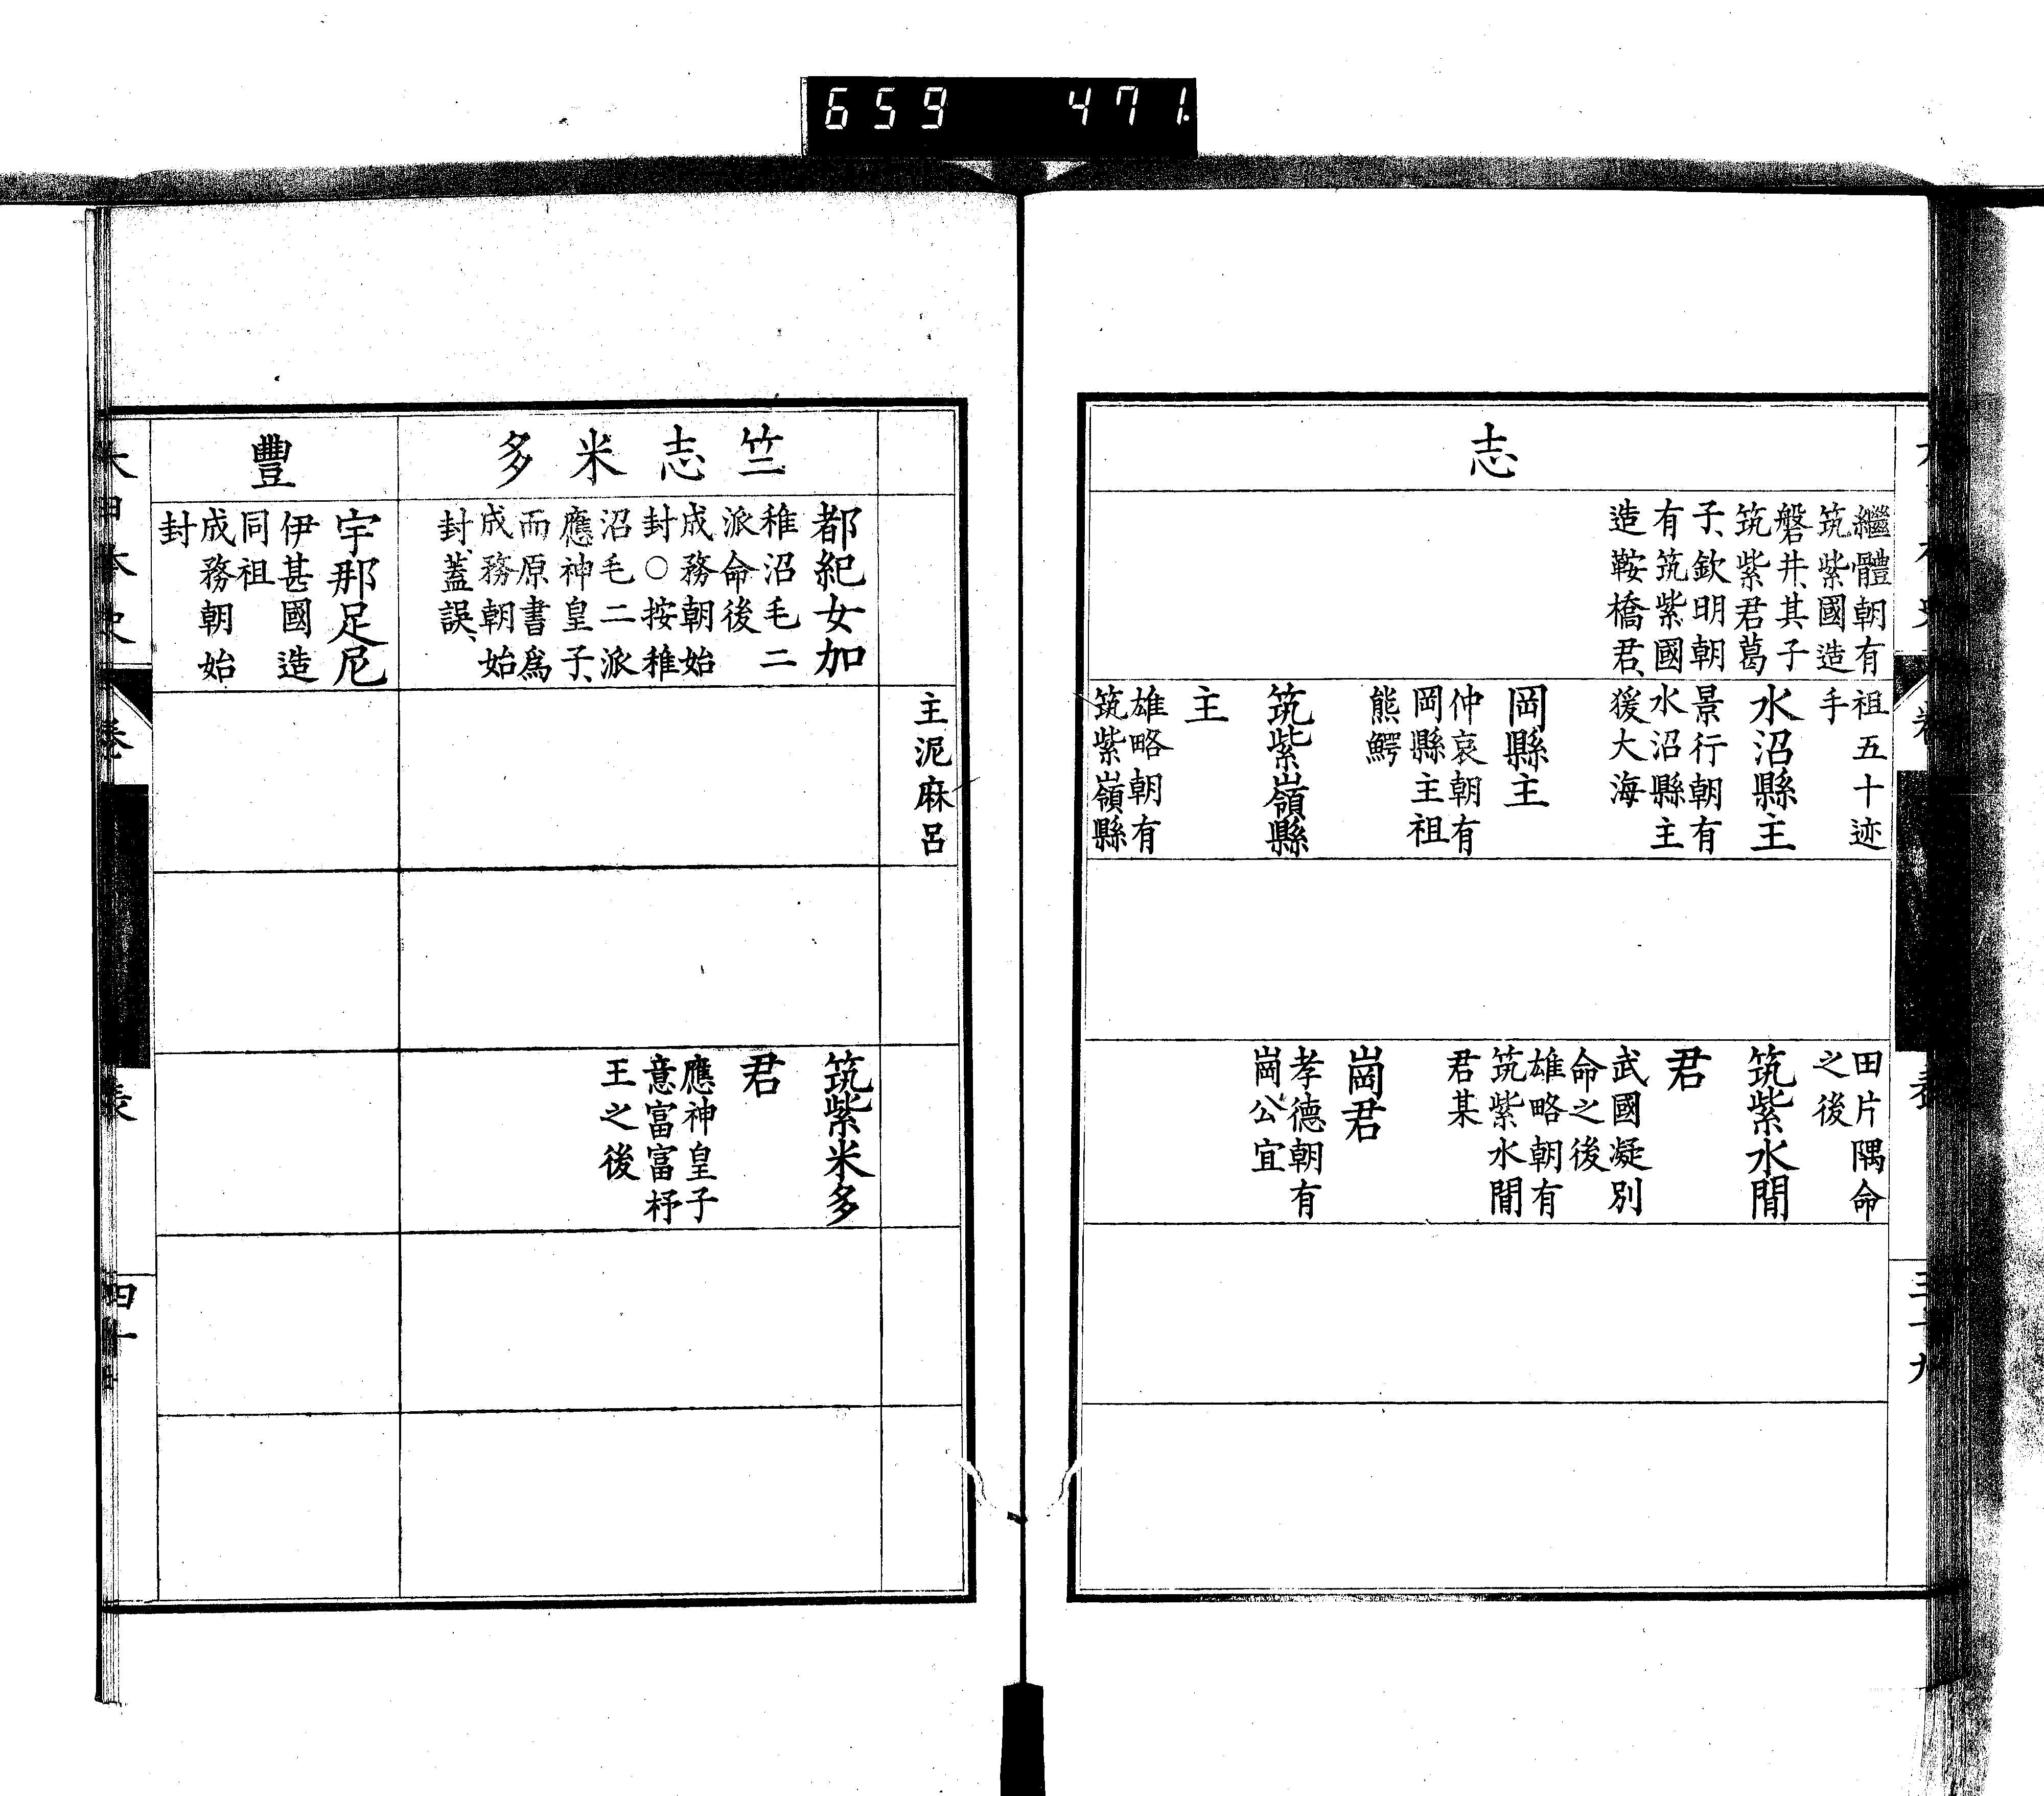 659 471
志
繼體朝有
筑紫國造
磐井、其子
筑紫君葛
子、欽明朝
有筑紫國
造鞍橋君、
祖五十迹
手
水沼縣主
景行朝有
水沼縣主
猨大海
岡縣主
仲哀朝有
岡縣主祖
熊鰐
筑紫嶺縣
主
雄略朝有
筑紫嶺縣
田片隅命
之後
筑紫水間
君
武國凝別
命之後
雄略朝有
筑紫水間
君某
崗君
孝德朝有
崗公宜
三十九
主泥麻呂
竺志米多
都紀女加
稚沼毛二
派命後
成務朝始
封○按稚
沼毛二派
應神皇子、
而原書爲
成務朝始
封、蓋誤、
筑紫米多
君
應神皇子
意富富杼
王之後
豐
宇那足尼
伊甚國造
同祖
成務朝始
封
大日本史
卷
表
四十